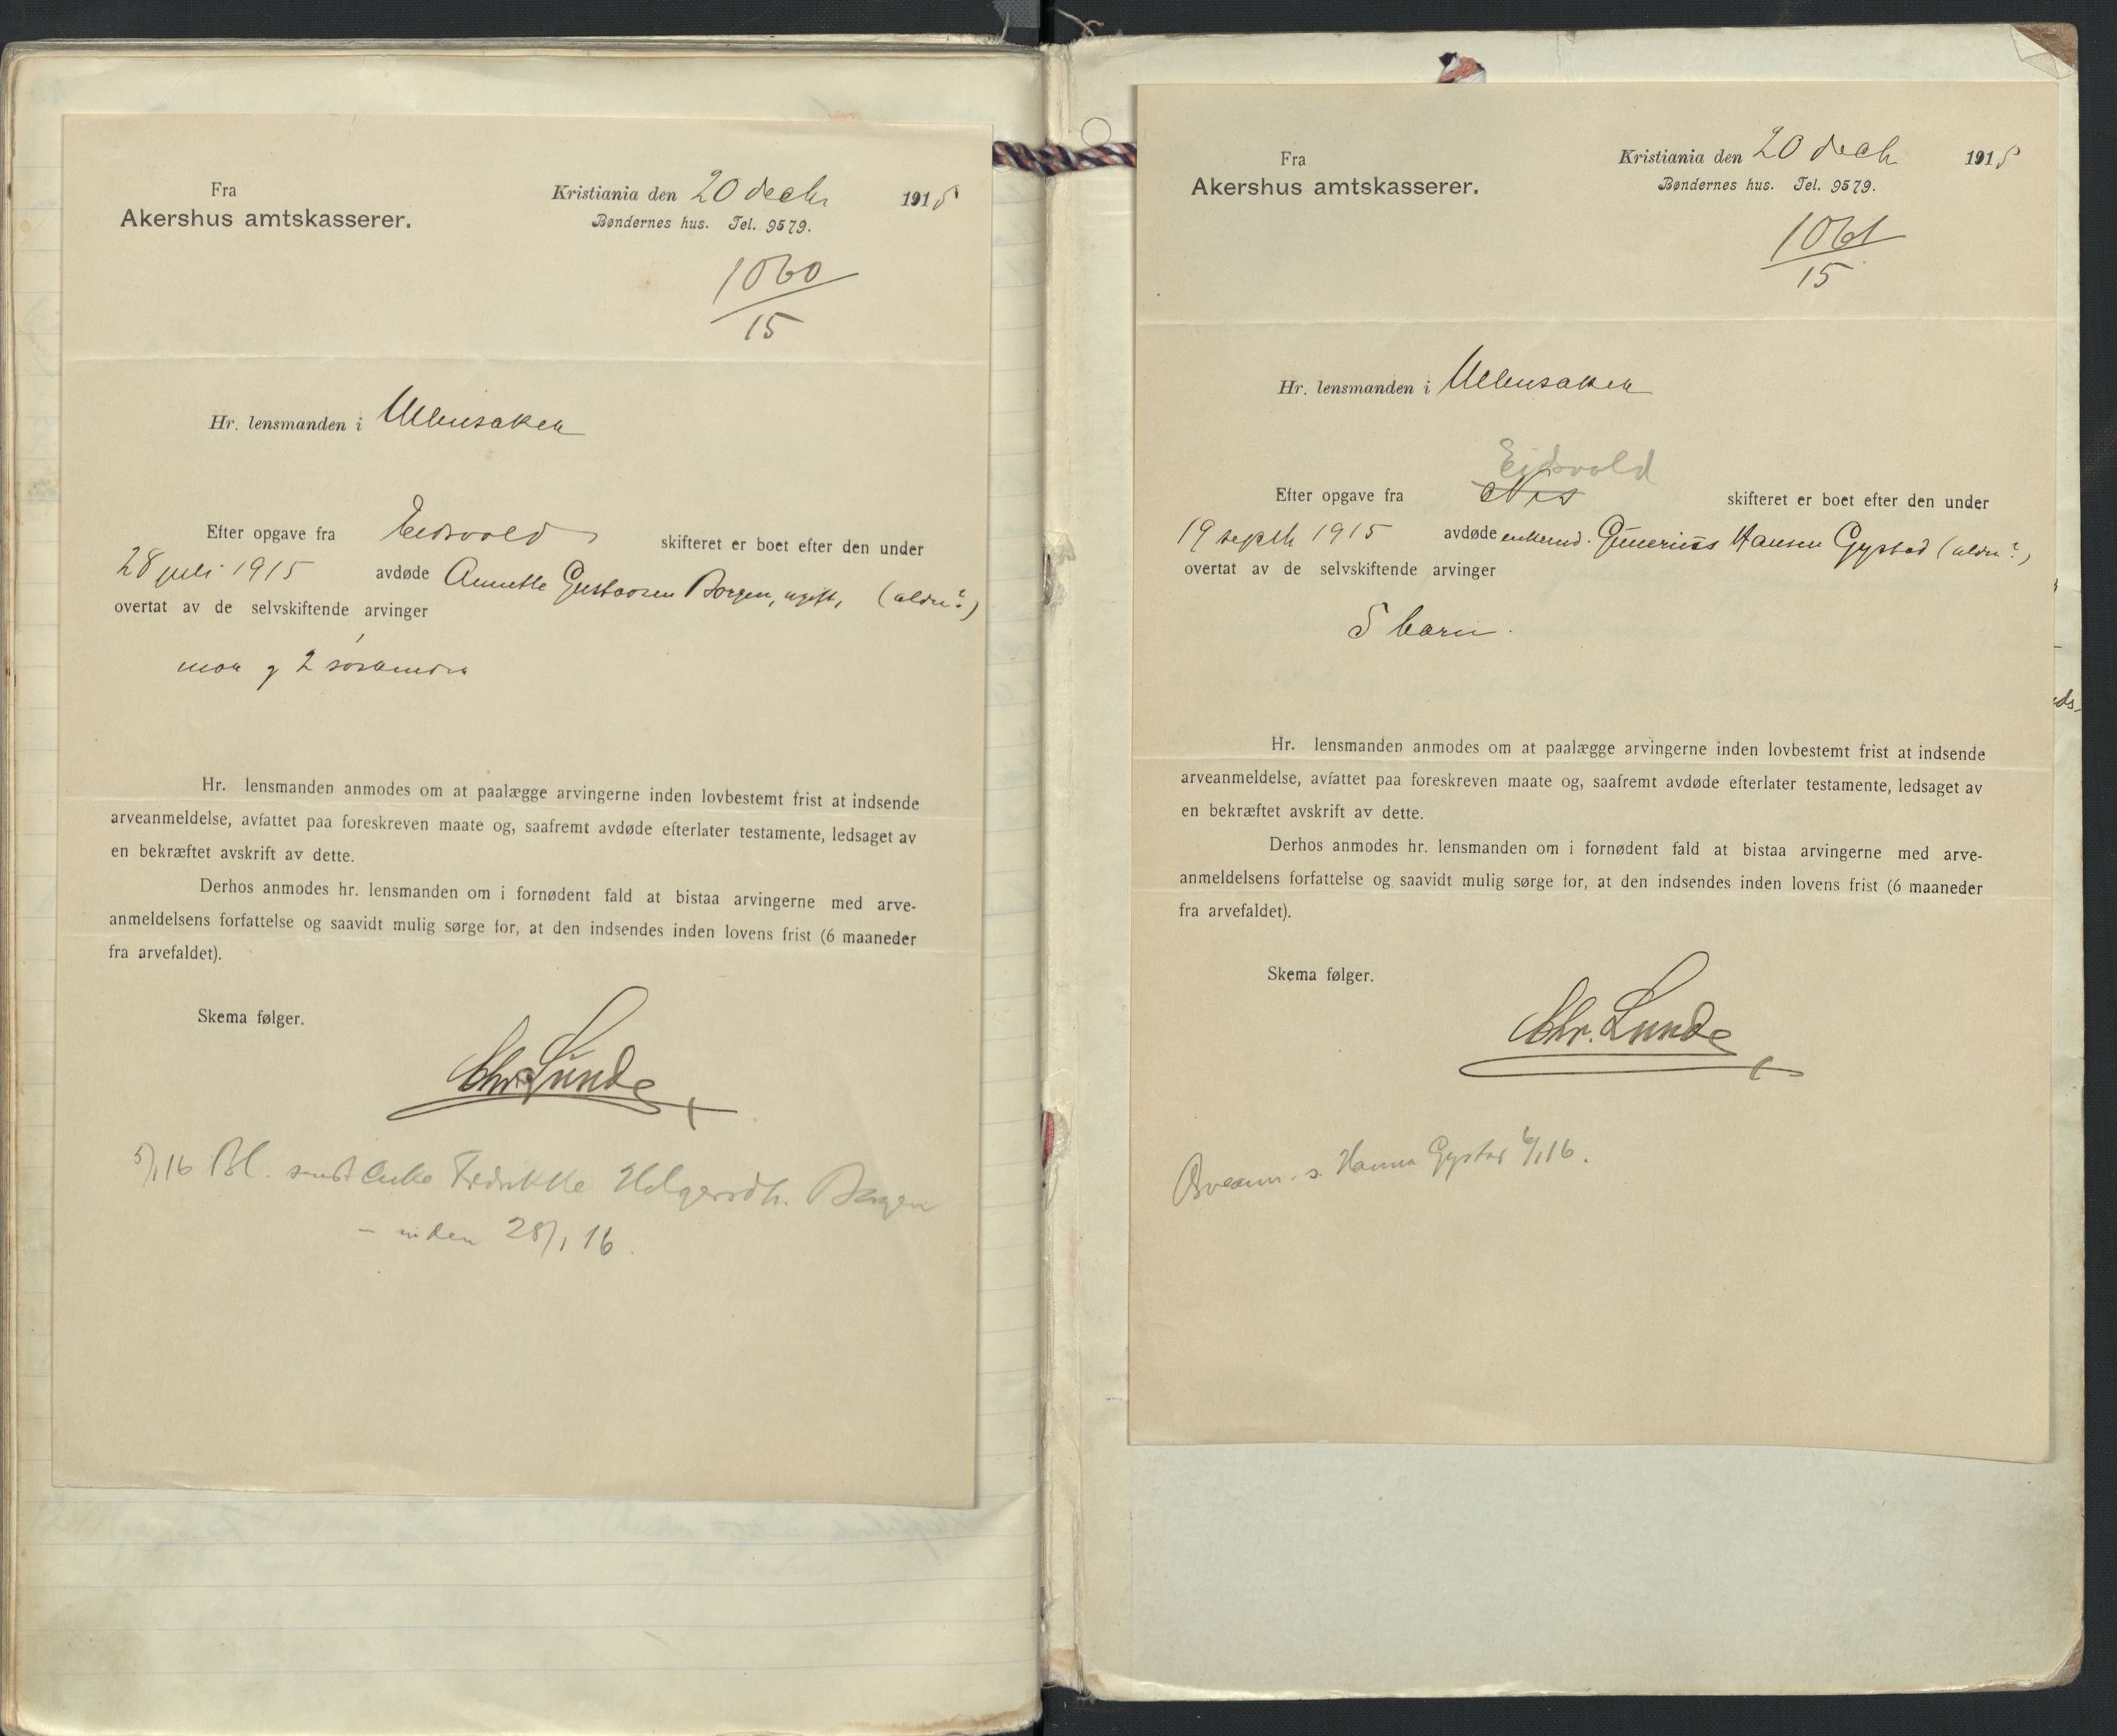 Fra
Akershus amtskasserer.
Kristiania den 20 decbr 1915
Bøndernes hus. Tel. 9579.
1060
15
Hr. lensmanden i Ullensaker
Efter opgave fra Eidsvold skifteret er boet efter den under
28 juli 1915 avdøde Annette Gustavsen Borgen, ugift, (alder?)
overtat av de selvskiftende arvinger
mor og 2 søskende
Hr. lensmanden anmodes om at paalægge arvingerne inden lovbestemt frist at indsende
arveanmeldelse, avfattet paa foreskreven maate og, saafremt avdøde efterlater testamente, ledsaget av
en bekræftet avskrift av dette.
Derhos anmodes hr. lensmanden om i fornødent fald at bistaa arvingerne med arve-
anmeldelsens forfattelse og saavidt mulig sørge for, at den indsendes inden lovens frist (6 maaneder
fra arvefaldet).
Skema følger.
Chr. Lunde
5/1 16 Bl. sendt Enke Fredrikke Holgersdtr. Borgen
– inden 28/1 16.
Fra
Akershus amtskasserer.
Kristiania den 20 decbr 1915
Bøndernes hus. Tel. 9579.
1061
15
Hr. lensmanden i Ullensaker
Eidsvold
Efter opgave fra Nes skifteret er boet efter den under
19 septbr 1915 avdøde enkemd. Gunerius Hansen Gystad (alder?)
overtat av de selvskiftende arvinger
5 barn.
Hr. lensmanden anmodes om at paalægge arvingerne inden lovbestemt frist at indsende
arveanmeldelse, avfattet paa foreskreven maate og, saafremt avdøde efterlater testamente, ledsaget av
en bekræftet avskrift av dette.
Derhos anmodes hr. lensmanden om i fornødent fald at bistaa arvingerne med arve-
anmeldelsens forfattelse og saavidt mulig sørge for, at den indsendes inden lovens frist (6 maaneder
fra arvefaldet).
Skema følger.
Chr. Lunde
s. Hanna Gystad 6/1 16.
ds-